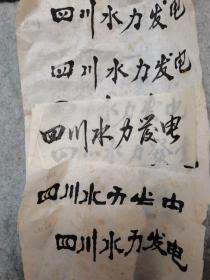 四川水力发电
四川水力发电
四川水力发电
四川水力发电
四川水力发电